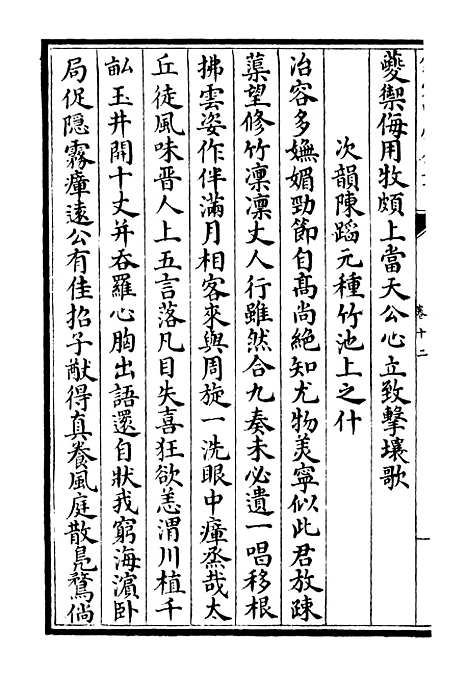 夔禦侮用牧頗上當天公心立致擊壤歌
次韻陳蹈元種竹池上之什
冶容多嫵媚勁節自髙尚絶知尤物美寧似此君放踈
蕖望修竹凛凛丈人行雖然合九奏未必遺一唱移根
拂雲姿作伴滿月相客來與周旋一洗眼中瘴烝哉太
丘徒風味晋人上五言落凡目失喜狂欲恙渭川植千
畆玉井開十丈并吞羅心胸出語還自狀我窮海濵卧
局促隠霧瘴遠公有佳招子猷得真養風庭散鳬鶩倘
卷十二